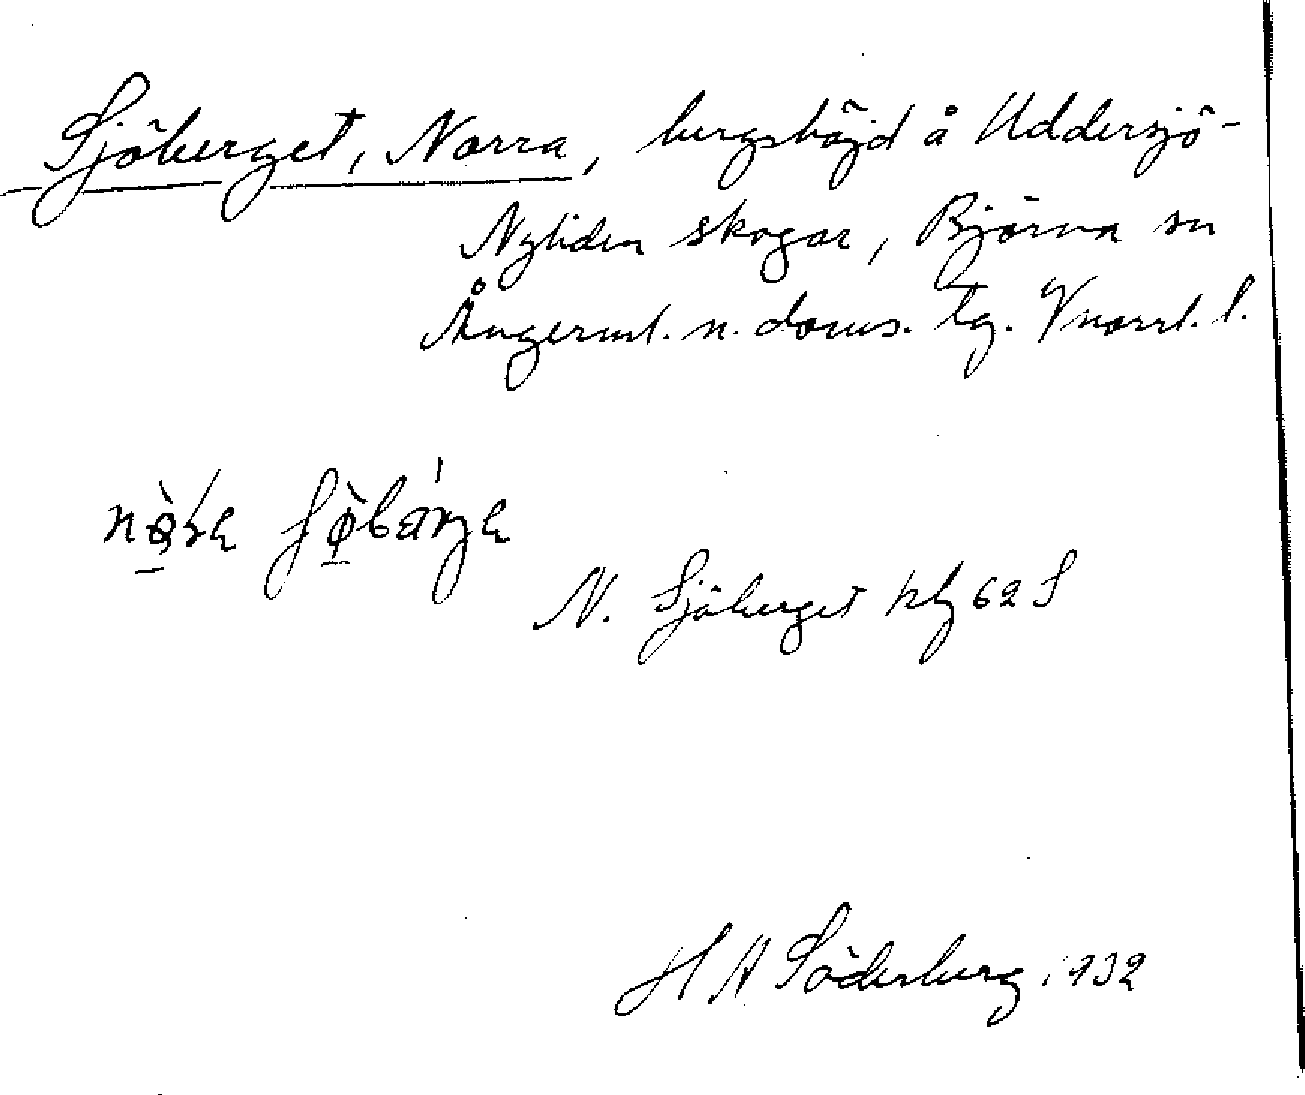 Sjöberget, Norra, bergshöjd å Uddersjö-
Nyliden skogar, Björna sn
Ångerml. n. doms. tg. Vnorrl. l.
N. Sjöberget kbl 62 S
H A Söderberg 1932